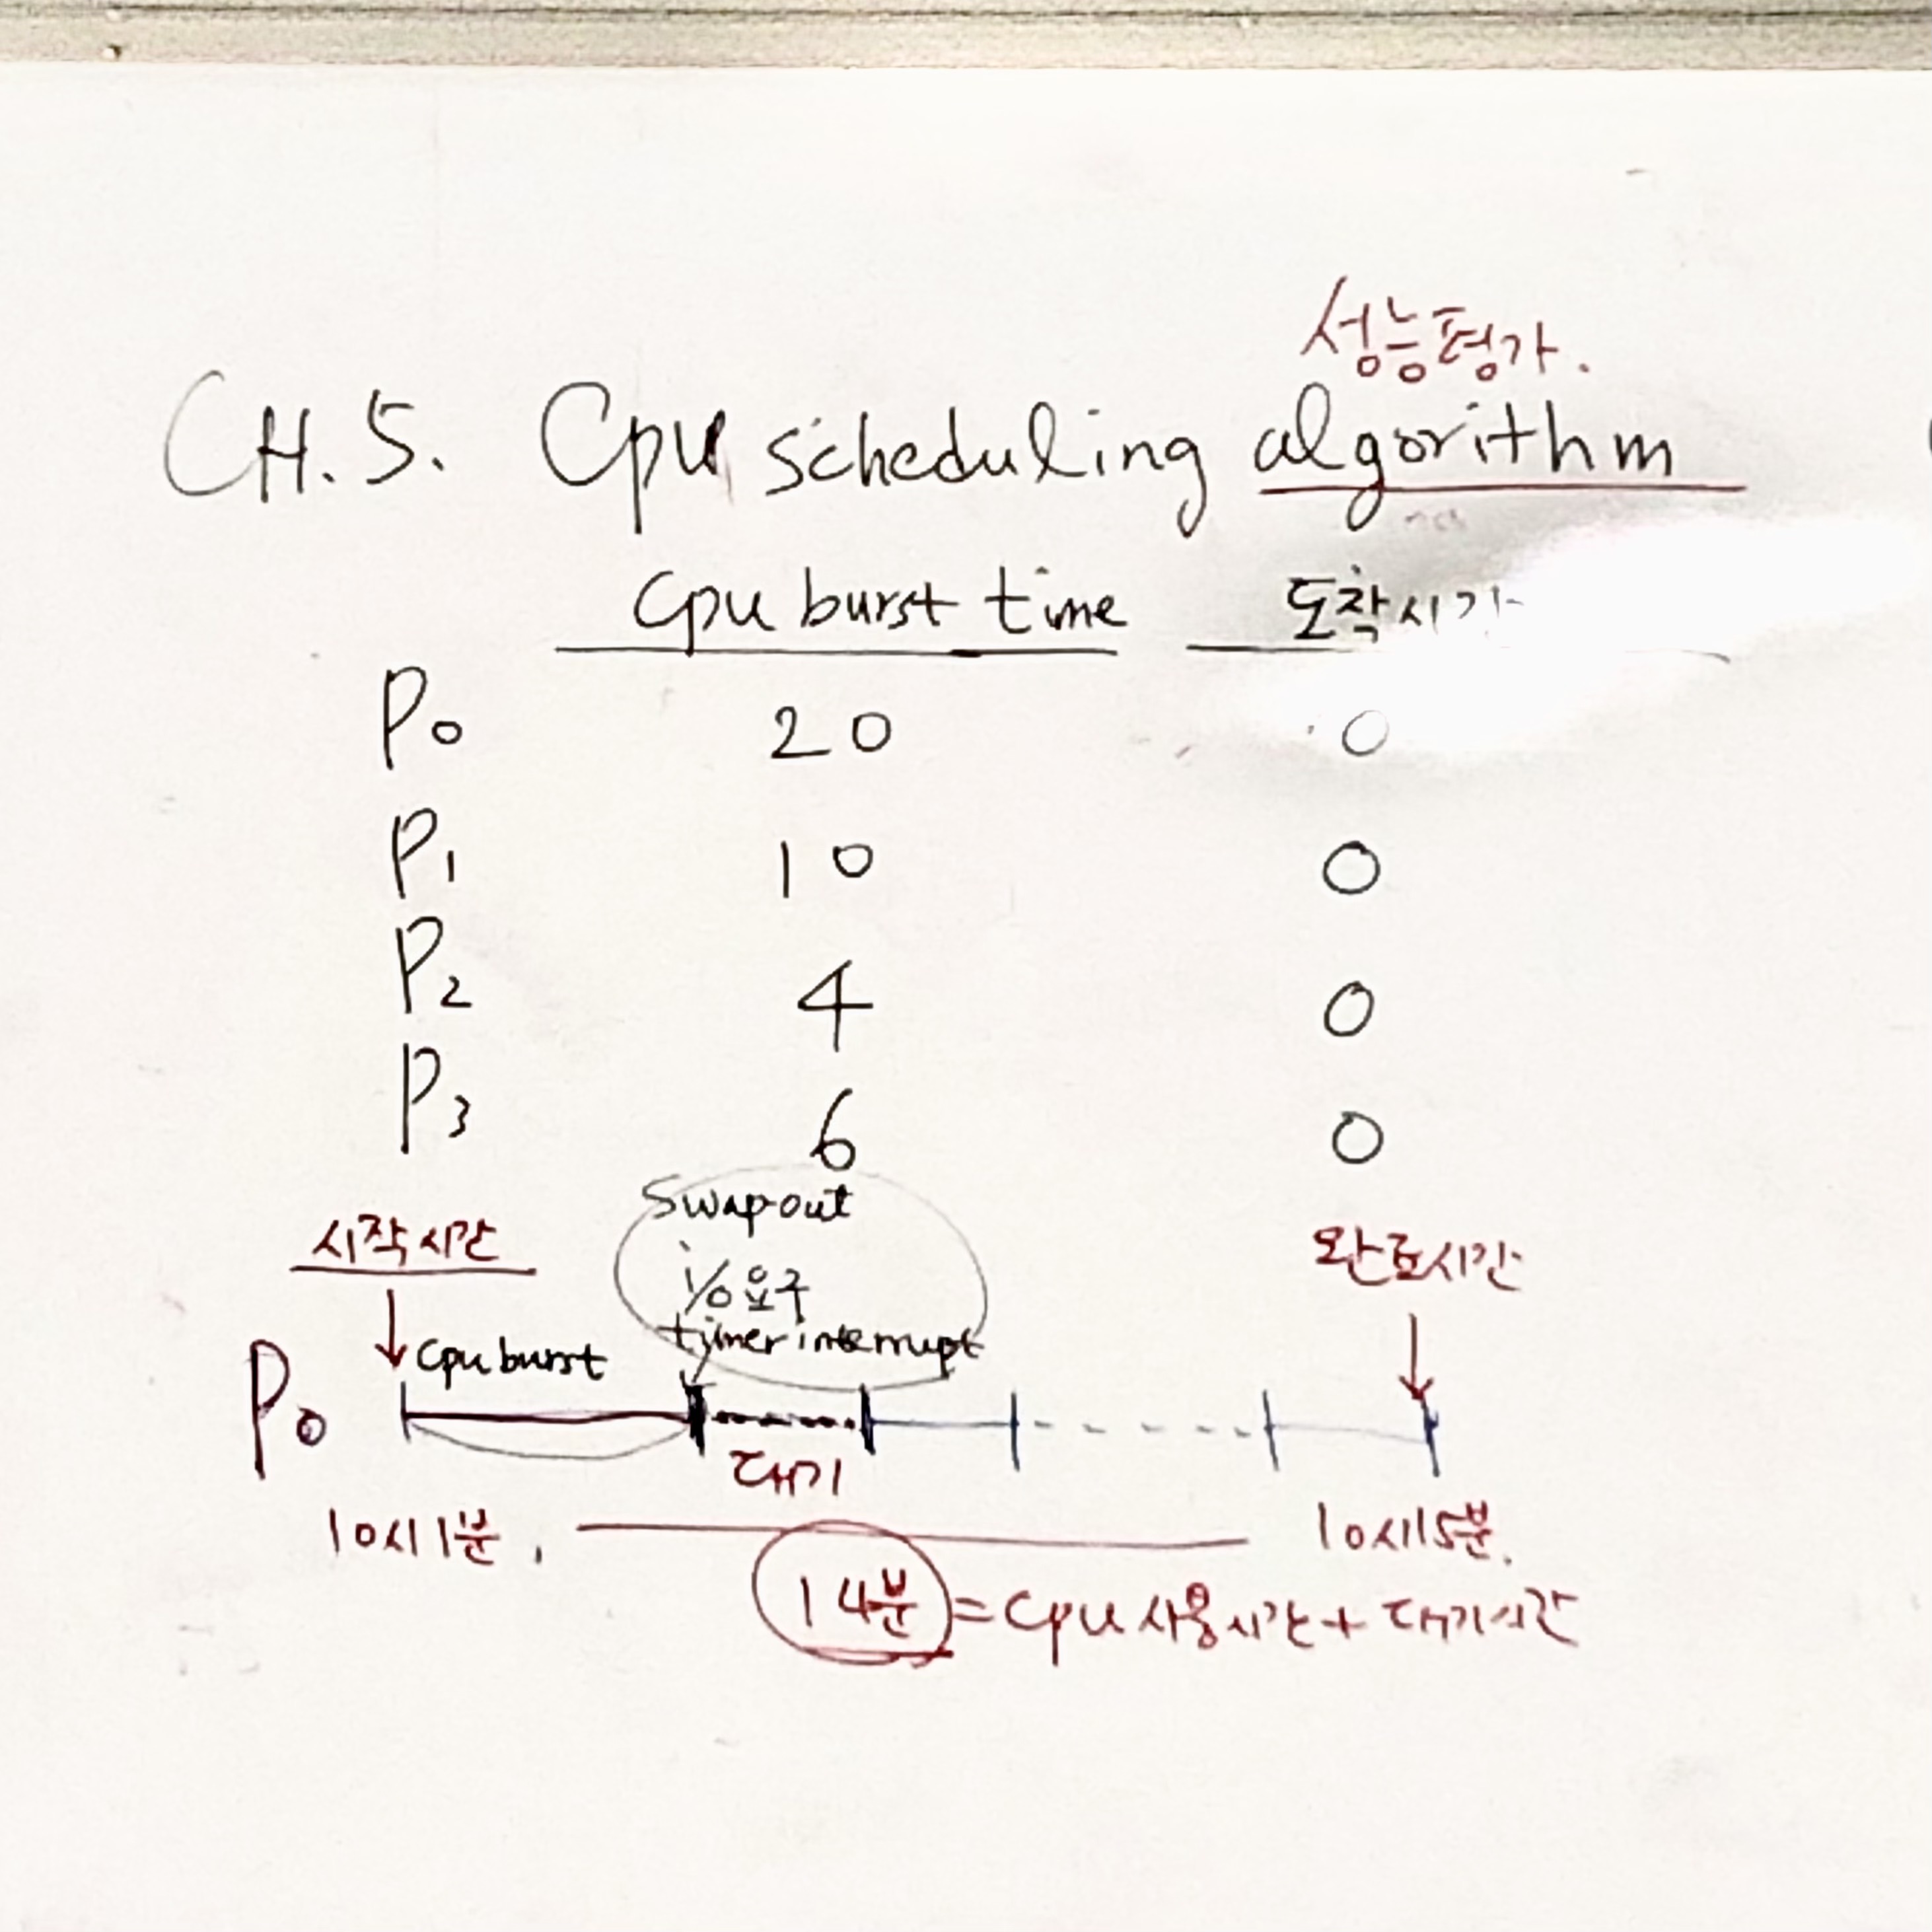 성능평가.
CH.5. Cpu scheduling algorithm
Cpu burst time 도착시간
P0 20 0
P1 10 0
P2 4 0
P3 6 0
Swap out
시작시간 i/o 요구 완료시간
timer interrupt
cpu burst
P0
대기
10시1분, 10시15분.
14분 = cpu 사용시간 + 대기시간